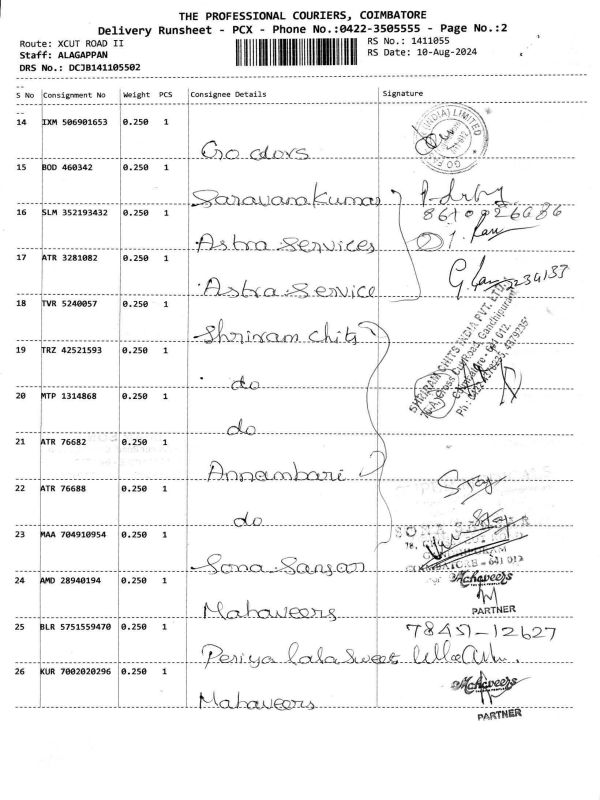 THE PROFESSIONAL COURIERS, COIMBATORE
Delivery Runsheet - PCX - Phone No.:0422-3505555 - Page No.:2
Route: XCUT ROAD II RS No.: 1411055
Staff: ALAGAPPAN RS Date: 10-Aug-2024
DRS No.: DCJB141105502
S No Consignment No Weight PCS Consignee Details Signature
14 IXM 506901653 0.250 1
Go colors
15 BOD 460342 0.250 1
Saravanakumar
8610926686
16 SLM 352193432 0.250 1
Astra Services
17 ATR 3281082 0.250 1
Astra Service
18 TVR 5240057 0.250 1
Shriram Chits
SHRIRAM CHITS INDIA PVT. LTD.
Gandhipuram
641 012.
19 TRZ 42521593 0.250 1
do
20 MTP 1314868 0.250 1
do
21 ATR 76682 0.250 1
Annambari
22 ATR 76688 0.250 1
do
23 MAA 704910954 0.250 1
SONA
COIMBATORE - 641 012
Sona Sansar
24 AMD 28940194 0.250 1
Mahaveers
PARTNER
Mahaveers
25 BLR 5751559470 0.250 1
7845-12627
Periya lala sweet
26 KUR 7002020296 0.250 1
Mahaveers
Mahaveers
PARTNER